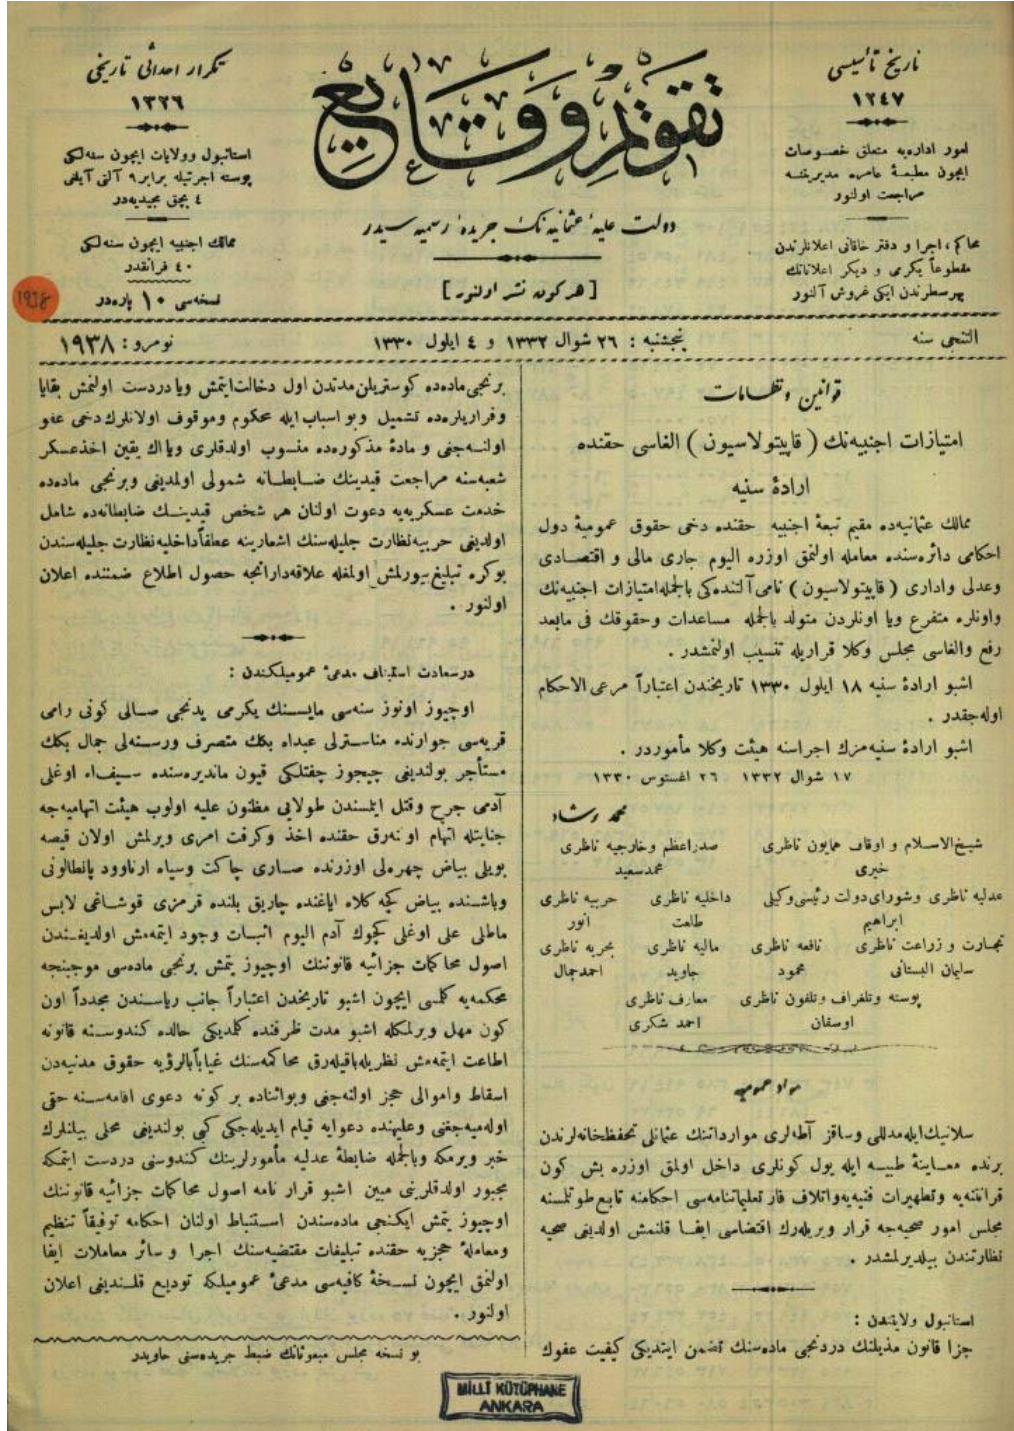 تاریخ تأسیسی
١٢٤٧
امور اداره‌یه متعلق خصوصات
ایچون مطبعهٔ عامره مدیریتنه
مراجعت اولنور
محاکم، اجرا و دفتر خاقانی اعلانلرندن
مقطوعاً یکرمی و دیکر اعلاناتك
بهرسطرندن ایکی غروش آلنور
تقویم وقایع
دولت علیهٔ عثمانیه‌نك جریدهٔ رسمیه‌سیدر
[ هرکون نشر اولنور ]
تکرار احداثی تاریخی
١٣٢٦
استانبول وولایات ایچون سنه‌لکی
پوسته اجرتیله برابر ٩ آلتی آیلغی
٤ بچق مجیدیه‌در
ممالك اجنبیه ایچون سنه‌لکی
٤٠ فرانقدر
نسخه‌سی ١٠ پاره‌در
١٩٣٨
التنجی سنه
پنجشنبه : ٢٦ شوال ١٣٣٢ و ٤ ایلول ١٣٣٠
نومرو : ١٩٣٨
قوانین و نظامات
امتیازات اجنبیه‌نك ( قاپیتولاسیون ) الغاسی حقنده
ارادهٔ سنیه
ممالك عثمانیه‌ده مقیم تبعهٔ اجنبیه حقنده دخی حقوق عمومیهٔ دول
احکامی دائره‌سنده معامله اولنمق اوزره الیوم جاری مالی و اقتصادی
وعدلی واداری ( قاپیتولاسیون ) نامی آلتنده‌کی بالجمله امتیازات اجنبیه‌نك
واونلره متفرع ویا اونلردن متولد بالجمله مساعدات وحقوقك فی مابعد
رفع والغاسی مجلس وکلا قراریله تنسیب اولنمشدر .
اشبو ارادهٔ سنیه ١٨ ایلول ١٣٣٠ تاریخندن اعتباراً مرعی الاحکام
اوله‌جقدر .
اشبو ارادهٔ سنیه‌مزك اجراسنه هیئت وکلا مأموردر .
١٧ شوال ١٣٣٢ ٢٦ اغستوس ١٣٣٠
محمد رشاد
شیخ‌الاسلام و اوقاف همایون ناظری صدراعظم وخارجیه ناظری
خیری محمدسعید
عدلیه ناظری وشورای دولت رئیسی وکیلی داخلیه ناظری حربیه ناظری
ابراهیم طلعت انور
تجارت و زراعت ناظری نافعه ناظری مالیه ناظری بحریه ناظری
سلیمان البستانی محمود جاوید احمدجمال
پوسته وتلغراف وتلفون ناظری معارف ناظری
اوسقان احمد شکری
مواد عمومیه
سلانیك‌ایله مدللی وساقز آطه‌لری مواردا‌تنك عثمانلی تحفظخانه‌لرندن
برنده معاینهٔ طبیه ایله یول کونلری داخل اولمق اوزره بش کون
قرانتنه‌یه وتطهیرات فنیه‌یه واتلاف فار تعلیماتنامه‌سی احکامنه تابع طوتلسنه
مجلس امور صحیه‌جه قرار ویریله‌رك اقتضاسی ایفا قلنمش اولدیغی صحیه
نظارتندن بیلدیرلمشدر .
استانبول ولایتندن :
جزا قانون مذیلنك دردنجی ماده‌سنك تضمن ایتدیکی کیفیت عفوك
برنجی ماده‌ده کوستریلن مدتدن اول دخالت ایتمش ویا دردست اولنمش بقایا
وفراریلره‌ده تشمیل وبو اسباب ایله محکوم وموقوف اولانلرك دخی عفو
اولنه‌جغی و مادهٔ مذکوره‌ده منسوب اولدقلری ویا اك یقین اخذعسکر
شعبه‌سنه مراجعت قیدینك ضابطانه شمولی اولمدیغی وبرنجی ماده‌ده
خدمت عسکریه‌یه دعوت اولنان هر شخص قیدینك ضابطانه‌ده شامل
اولدیغی حربیه نظارت جلیله‌سنك اشعارینه عطفاً داخلیه نظارت جلیله‌سندن
بوکره تبلیغ بیورلمش اولمغله علاقه‌دارانجه حصول اطلاع ضمننده اعلان
اولنور .
درسعادت استیناف مدعئ عمومیلکندن :
اوچیوز اوتوز سنه‌سی مایسنك یکرمی یدنجی صالی کونی رامی
قریه‌سی جوارنده مناسترلی عبداﷲ بكك متصرف ورسنه‌لی جمال بكك
مستأجر بولندیغی چیچوز چفتلکی قیون ماندیره‌سنده سیف‌اﷲ اوغلی
آدمی جرح وقتل ایلسندن طولایی مظنون علیه اولوب هیئت اتهامیه‌جه
جنایتله اتهام اولنه‌رق حقنده اخذ وکرفت امری ویرلمش اولان قیصه
بویلی بیاض چهره‌لی اوزرنده صاری چاکت وسیاه ارناوود پانطالونی
وباشنده بیاض کچه کلاه ایاغنده چاریق بلنده قرمزی قوشاغی لابس
ماطلی علی اوغلی کچوك آدم الیوم اثبات وجود ایتمه‌مش اولدیغندن
اصول محاکمات جزائیه قانوننك اوچیوز یتمش برنجی ماده‌سی موجبنجه
محکمه‌یه کلمسی ایچون اشبو تاریخدن اعتباراً جانب ریاستدن مجدداً اون
کون مهل ویرلمکله اشبو مدت ظرفنده کلمدیکی حالده کندوسنه قانونه
اطاعت ایتمه‌مش نظریله باقیله‌رق محاکمه‌سنك غیاباً بالرؤیه حقوق مدنیه‌دن
اسقاط واموالی حجز اولنه‌جغی وبواثناده بر کونه دعوی اقامه‌سنه حقی
اوله‌میه‌جغی وعلیهنده دعوایه قیام ایدیله‌جکی کبی بولندیغی محلی بیلنلرك
خبر ویرمکه وبالجمله ضابطهٔ عدلیه مأمورلرینك کندوسنی دردست ایتمکه
مجبور اولدقلرینی مبین اشبو قرار نامه اصول محاکمات جزائیه قانوننك
اوچیوز یتمش ایکنجی ماده‌سندن استنباط اولنان احکامه توفیقاً تنظیم
ومعاملهٔ حجزیه حقنده تبلیغات مقتضیه‌سنك اجرا و سائر معاملات ایفا
اولنمق ایچون نسخهٔ کافیه‌سی مدعئ عمومیلکه تودیع قلندیغی اعلان
اولنور .
بو نسخه مجلس مبعوثانك ضبط جریده‌سنی حاویدر
MİLLİ KÜTÜPHANE
ANKARA